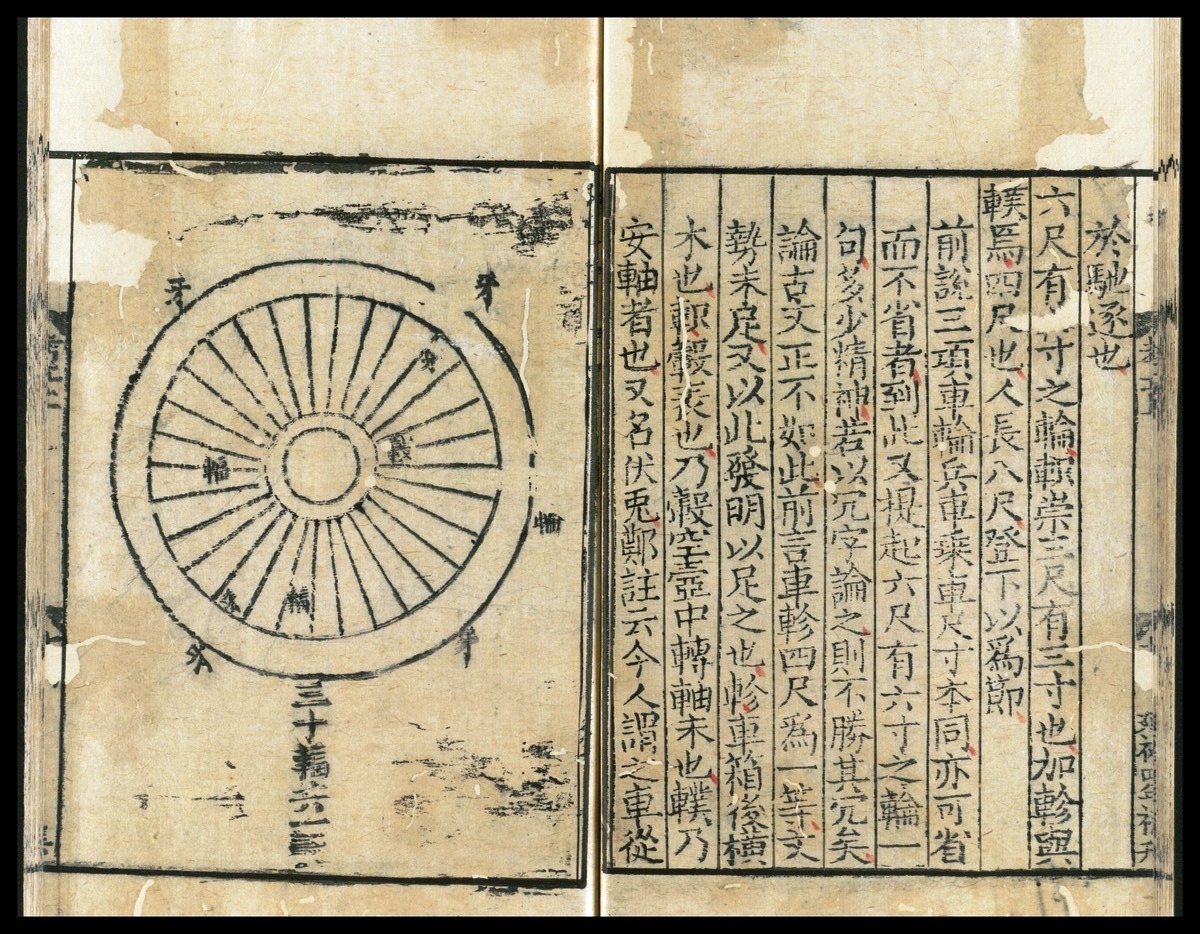 於馳逐也
六尺有六寸之輪軹崇三尺有三寸也加軫與
轐焉四尺也人長八尺登下以爲節
前說三項車輪兵車乘車尺寸本同亦可省
而不省者到此又提起六尺有六寸之輪一
句多少精神若以冗字論之則不勝其冗矣
論古文正不如此前言車軫四尺爲一等文
勢未足又以此發明以足之也軫車箱後橫
木也軹轂末也乃轂空壺中轉軸末也轐乃
安軸者也又名伏兎鄭註云今人謂之車從
牙
牙
轂
輻
輪
輻
牙
牙
三十輻共一轂